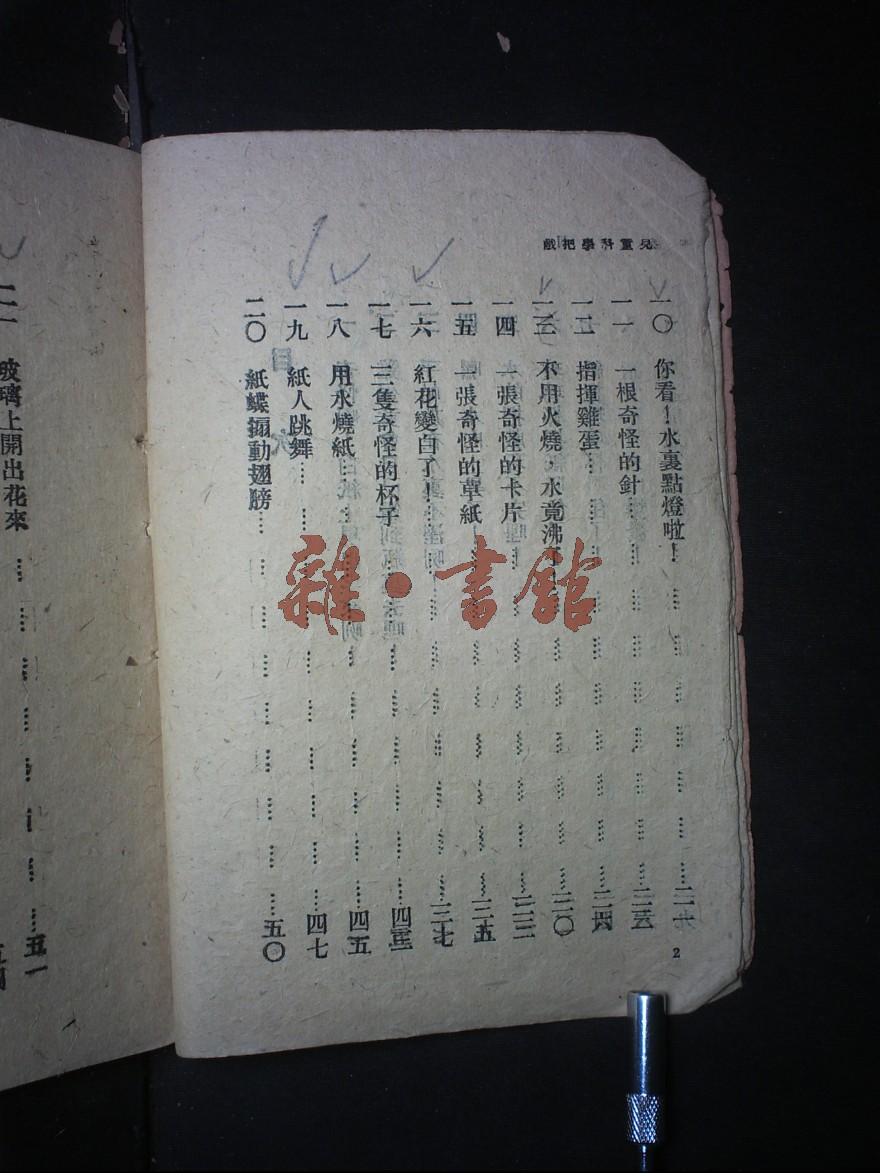 兒童科學把戲
一〇 你看！水裏點燈啦！ 二一
一一 一根奇怪的針 二三
一二 指揮雞蛋
一三 不用火燒，水竟沸
一四 一張奇怪的卡片
一五 一張奇怪的草紙 三五
一六 紅花變白了！ 三七
一七 三隻奇怪的杯子 四三
一八 用水燒紙 四五
一九 紙人跳舞 四七
二〇 紙蝶搧動翅膀 五〇
2
二一 玻璃上開出花來 五一
雜·書館